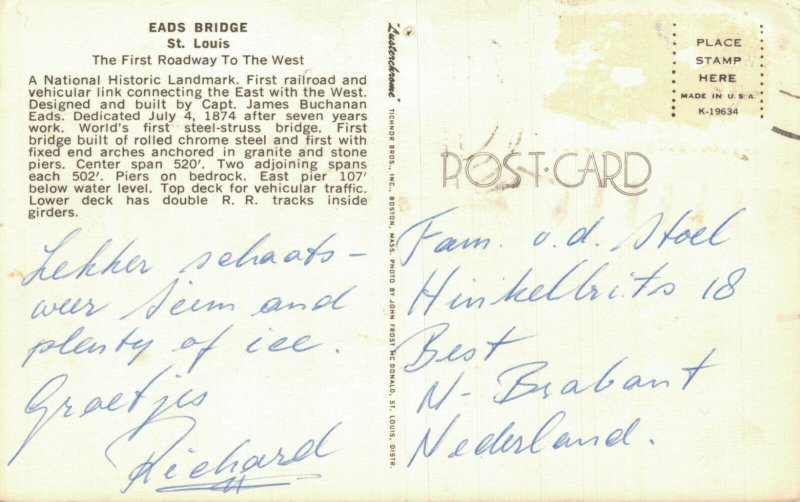 EADS BRIDGE
St. Louis
The First Roadway To The West
A National Historic Landmark. First railroad and
vehicular link connecting the East with the West.
Designed and built by Capt. James Buchanan
Eads. Dedicated July 4, 1874 after seven years
work. World's first steel-struss bridge. First
bridge built of rolled chrome steel and first with
fixed end arches anchored in granite and stone
piers. Center span 520'. Two adjoining spans
each 502'. Piers on bedrock. East pier 107'
below water level. Top deck for vehicular traffic.
Lower deck has double R. R. tracks inside
girders.
Lekker schaats-
weer and
plenty of ice.
Groetjes
Richard
"Lusterchrome" TICHNOR BROS., INC., BOSTON, MASS. PHOTO BY JOHN FROST MC DONALD, ST. LOUIS, DISTR.
PLACE
STAMP
HERE
MADE IN U.S.A.
K-19634
POST CARD
Fam. v.d. Stoel
Hinkelbrits 18
Best
N-Brabant
Nederland.